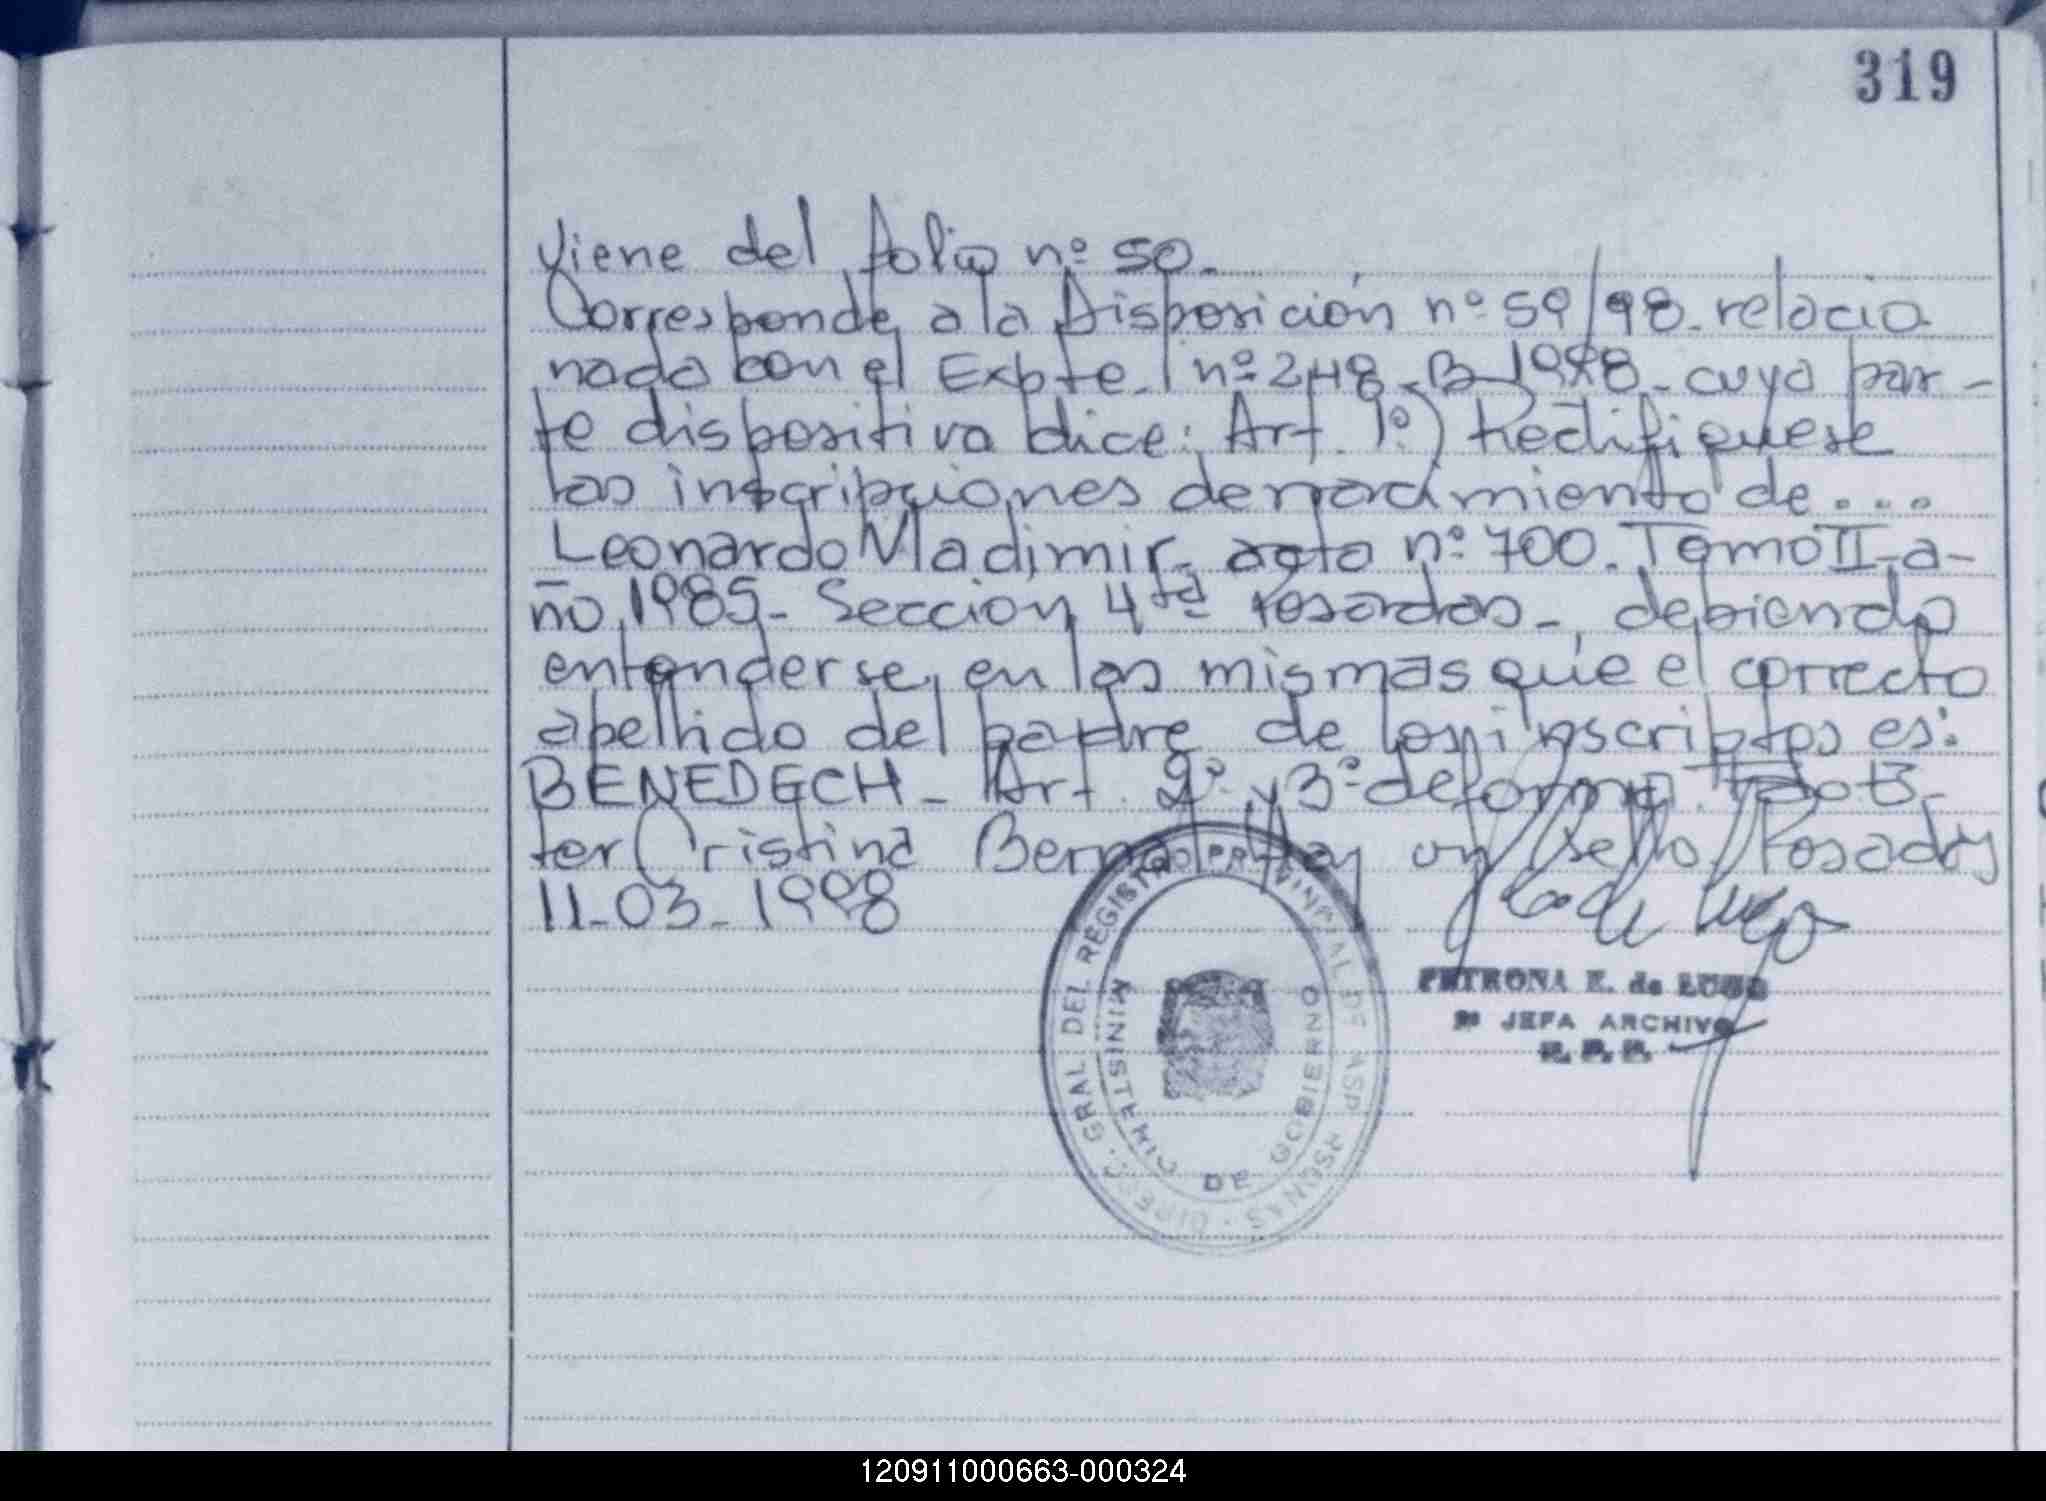 319
Viene del folio nº 50.
Corresponde a la Disposición nº 59/98. relacio
nada con el Expte. nº 248-B-1998- cuya par-
te dispositiva dice: Art. 1º) Rectifiquese
las inscripciones de nacimiento de...
Leonardo Vladimir- acta nº 700. Tomo II-a-
ño 1985- Seccion 4ta Posadas-, debiendo
entenderse en las mismas que el correcto
apellido del padre de los inscriptos es:
BENEDECH- Art. 2º y 3º de forma.
ter Cristina Bernal Hay un sello Posadas
11-03-1998
PETRONA E. de LUGO
2º JEFA ARCHIVO
R. P. P.
DIREC. GRAL DEL REGISTRO PROVINCIAL DE LAS PERSONAS
MINISTERIO DE GOBIERNO
120911000663-000324